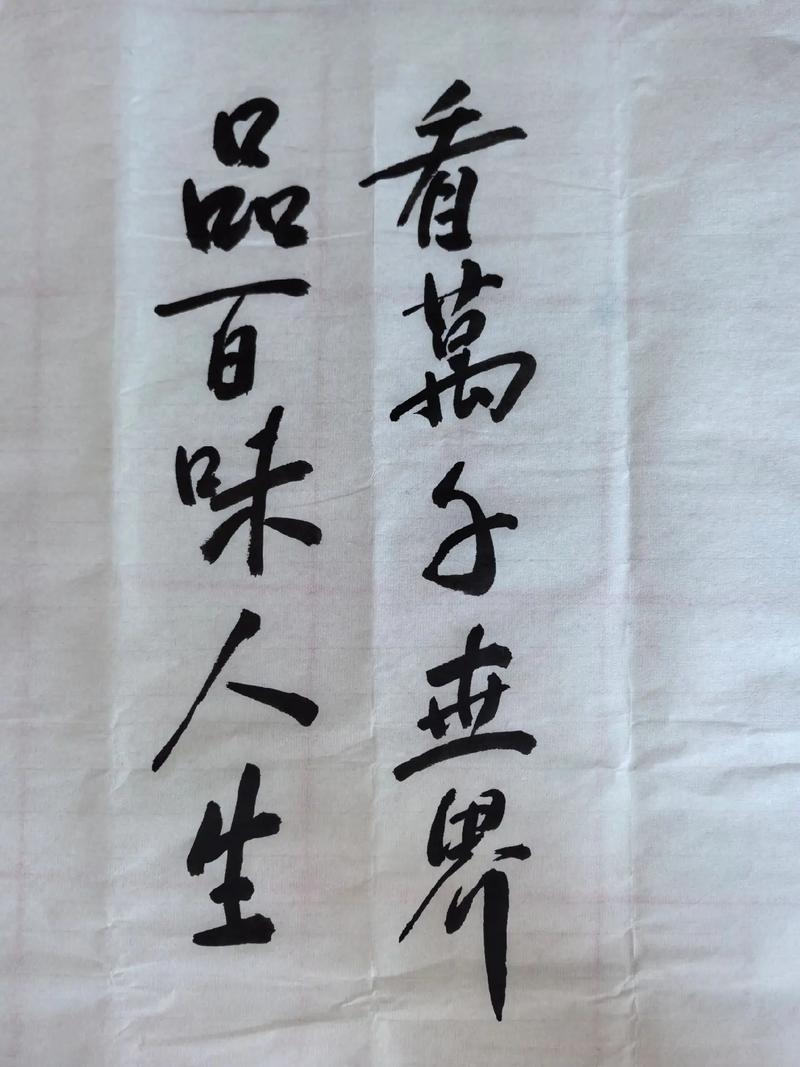 看萬千世界
品百味人生